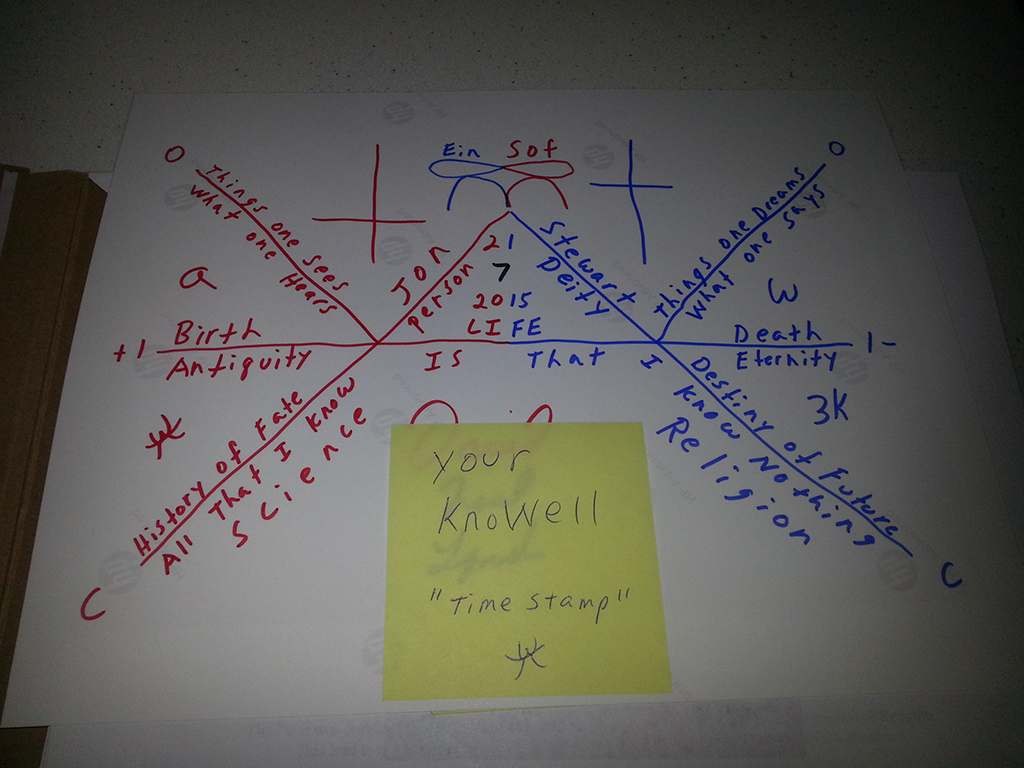 Ein Sof
O
O
Things one sees
What one Hears
Jon
Person
21
7
2015
LIFE
Stewart
Deity
Things one Dreams
What one says
a
ω
+1
Birth
Antiquity
IS
That
I
Death
Eternity
1-
3K
History of Fate
All That I Know
Science
Destiny of Future
Know Nothing
Religion
C
C
your
KnoWell
"Time Stamp"